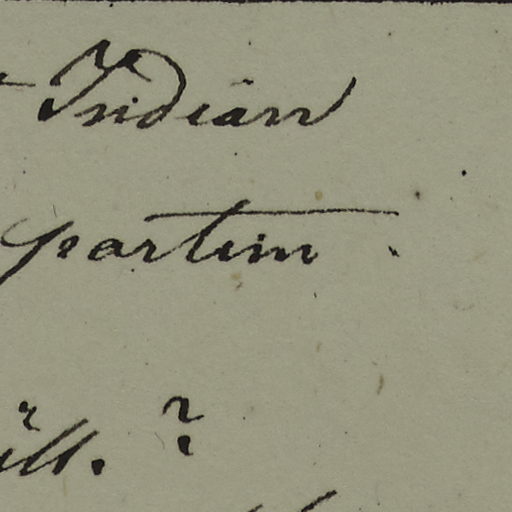 Indian
partim.
ill. ?